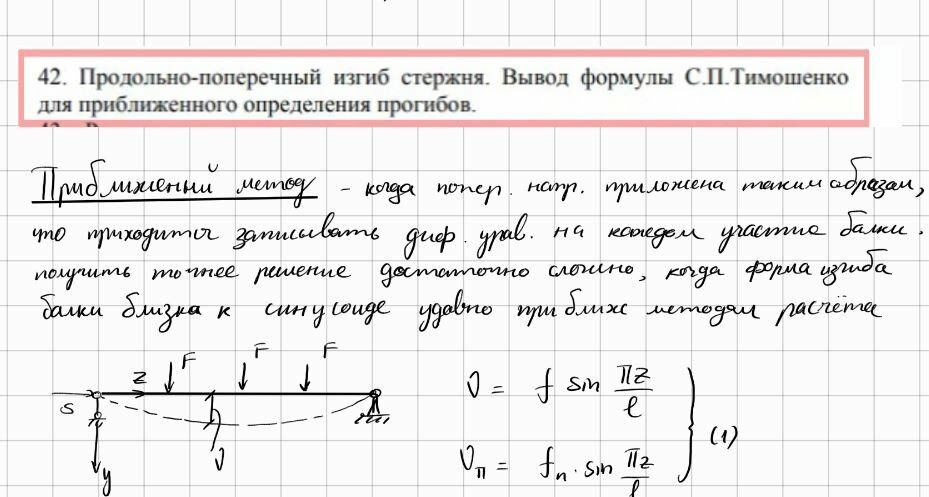 42. Продольно-поперечный изгиб стержня. Вывод формулы С.П.Тимошенко
для приближенного определения прогибов.
Приближенный метод - когда попер. нагр. приложена таким образом,
что приходится записывать диф. урав. на каждом участке балки.
получить точнее решение достаточно сложно, когда форма изгиба
балки близка к синусоиде удобно приближ методом расчёта
F F F
z
S
y
υ
υ = f sin πz/l
υп = fп · sin πz/l
(1)